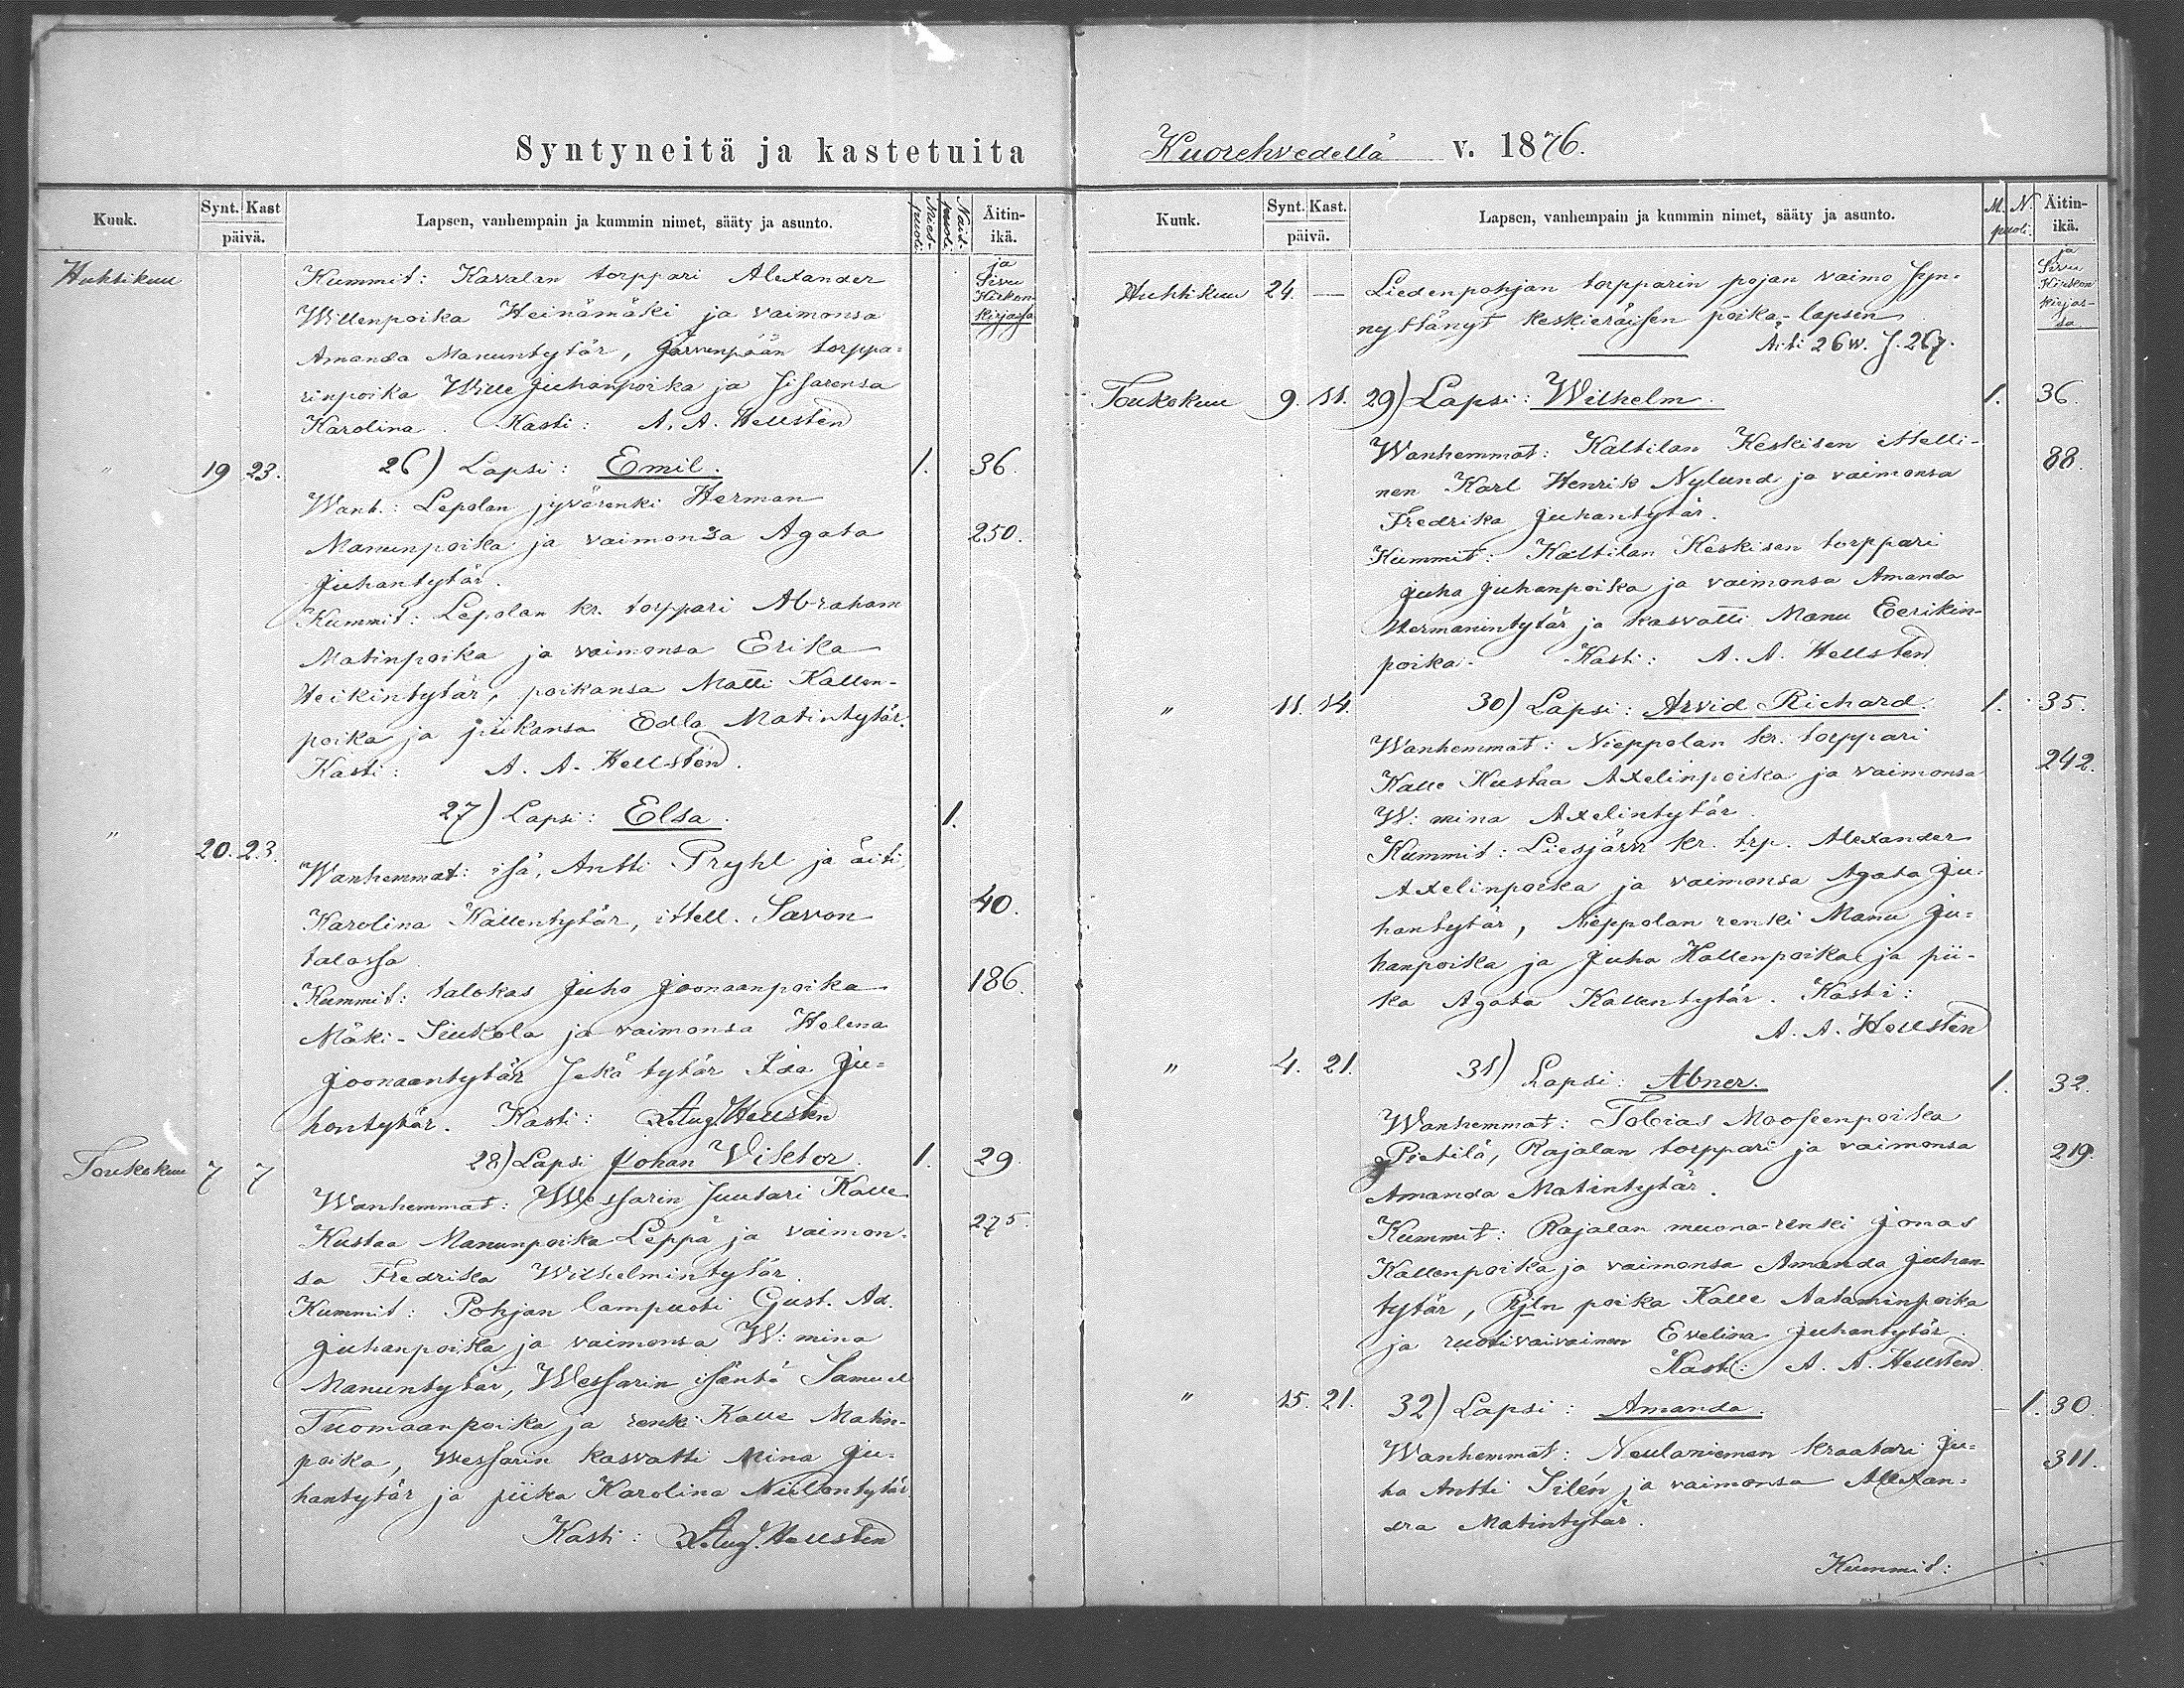 Syntyneitä ja kastetuita
Kuuk. Synt. Kast päivä. Lapsen, vanhempain ja kummin nimet, sääty ja asunto. Miespuoli. Naispuoli. Äitin-ikä. ja Sivu Kirkonkirjassa
Huhtikuu Kummit: Kavalan torppari Alexander
Willenpoika Heinämäki ja vaimonsa
Amanda Manuntytär, Järvenpään torppa-
rinpoika Wille Juhanpoika ja sisarensa
Karolina. Kasti: A. A. Hellsten
" 19 23. 26) Lapsi: Emil. 1. 36.
Wanh.: Lepolan jyvärenki Herman
Manunpoika ja vaimonsa Agata 250.
Juhantytär.
Kummit: Lepolan kr. torppari Abraham
Matinpoika ja vaimonsa Erika
Heikintytär, poikansa Matti Kallen-
poika ja piikansa Edla Matintytär.
Kasti: A. A. Hellsten.
27) Lapsi: Elsa. 1.
" 20. 23. Wanhemmat: isä, Antti Pryhl ja äiti,
Karolina Kallentytär, ittell. Savon 40.
talossa.
Kummit: talokas Juho Joonaanpoika 186.
Mäki-Siukola ja vaimonsa Helena
Joonaantytär sekä tytär Ida Ju-
hontytär. Kasti: A. Aug. Hellsten
Toukokuu 7 7 28) Lapsi Johan Viktor. 1. 29.
Wanhemmat: Wessarin suutari Kalle
Kustaa Manunpoika Leppä ja vaimon- 275.
sa Fredrika Wilhelmintytär.
Kummit: Pohjan lampuoti Gust. Ad.
Juhanpoika ja vaimonsa W:mina
Manuntytär, Wessarin isäntä Samuel
Tuomaanpoika ja renki Kalle Matin-
poika, Wessarin kasvatti Mina Ju-
hantytär ja piika Karolina Niilontytär
Kasti: A. Aug. Hellsten
Kuorehvedellä v. 1876.
Kuuk. Synt. Kast. päivä. Lapsen, vanhempain ja kummin nimet, sääty ja asunto. M. N. puoli. Äitin-ikä. ja Sivu Kirkonkirjas-sa
Huhtikuu 24. — Liedenpohjan torpparin pojan vaimo syn-
nyttänyt keskieräisen poika-lapsen.
Äiti 26 w. S. 267.
Toukokuu 9. 11. 29) Lapsi: Wilhelm. 1. 36.
Wanhemmat: Kaltilan Keskisen ittelli- 88.
nen Karl Henrik Nylund ja vaimonsa
Fredrika Juhantytär.
Kummit: Kaltilan Keskisen torppari
Juha Juhanpoika ja vaimonsa Amanda
Hermanintytär ja kasvatti Manu Eerikin-
poika. Kasti: A. A. Hellsten
" 11. 14. 30) Lapsi: Arvid Richard. 1. 35.
Wanhemmat: Nieppolan kr. torppari
Kalle Kustaa Axelinpoika ja vaimonsa 242.
W:mina Axelintytär.
Kummit: Liesjärvi kr. trp. Alexander
Axelinpoika ja vaimonsa Agata Ju-
hantytär, Nieppolan renki Manu Ju-
hanpoika ja Juha Kallenpoika ja pii-
ka Agata Kallentytär. Kasti:
A. A. Hellsten
" 4. 21. 31) Lapsi: Abner. 1. 32.
Wanhemmat: Tobias Moosenpoika
Pietilä, Rajalan torppari ja vaimonsa 219.
Amanda Matintytär.
Kummit: Rajalan muona-renki Jonas
Kallenpoika ja vaimonsa Amanda Juhan-
tytär, Rjln poika Kalle Aataminpoika
ja ruotivaivainen Evelina Juhantytär.
Kasti: A. A. Hellsten.
" 15. 21. 32) Lapsi: Amanda. 1. 30.
Wanhemmat: Neulaniemen kraatari Ju- 311.
ha Antti Silén ja vaimonsa Alexan-
dra Matintytär.
Kummit: